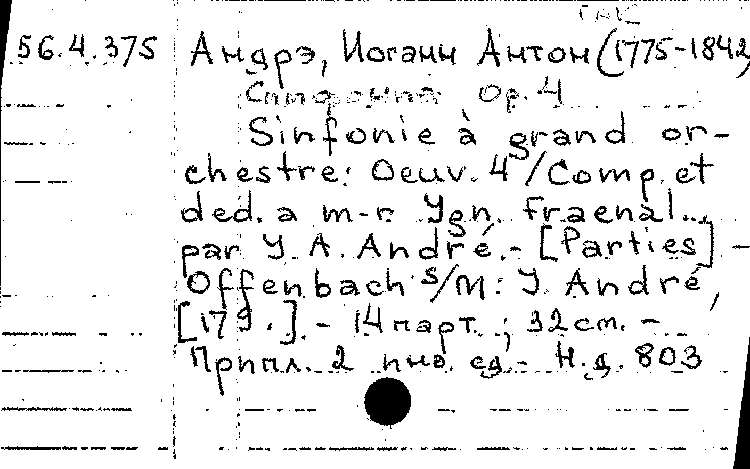 56.4.375 Андрэ, Иоганн Антон (1775-1842)
Симфония Op. 4
Sinfonie à grand or-
chestre: Oeuv. 4 / Comp. et
ded. a m-r. Ygn. Fraenal...
par Y. A. André. - [Parties] -
Offenbach s/M: Y. André,
[179.]. - 14 парт.; 32 cm. -
Припл. 2 инв. ед. - Н.д. 803